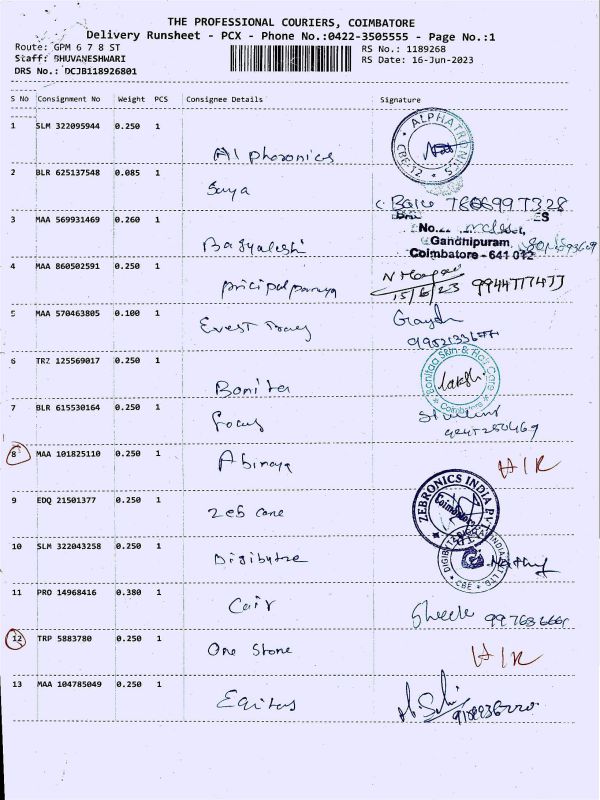 THE PROFESSIONAL COURIERS, COIMBATORE
Delivery Runsheet - PCX - Phone No.:0422-3505555 - Page No.:1
Route: GPM 6 7 8 ST RS No.: 1189268
Staff: BHUVANESHWARI RS Date: 16-Jun-2023
DRS No.: DCJB118926801
S No Consignment No Weight PCS Consignee Details Signature
1 SLM 322095944 0.250 1
ALPHATRONICS CBE-12
2 BLR 625137548 0.085 1
Surya
3 MAA 569931469 0.260 1
ES
No..
Gandhipuram,
Coimbatore - 641 012
4 MAA 860502591 0.250 1
15/6/23 9944777477
5 MAA 570463805 0.100 1
Everest
6 TRZ 125569017 0.250 1
Bonitaa Skin & Hair Care Coimbatore
Bonita
7 BLR 615530164 0.250 1
Focus
8 MAA 101825110 0.250 1
Abinaya H/R
9 EDQ 21501377 0.250 1
ZEBRONICS INDIA PVT LTD Coimbatore
Zeb care
10 SLM 322043258 0.250 1
CBE
11 PRO 14968416 0.380 1
Cair
12 TRP 5883780 0.250 1
One Stone H/R
13 MAA 104785049 0.250 1
Equitas